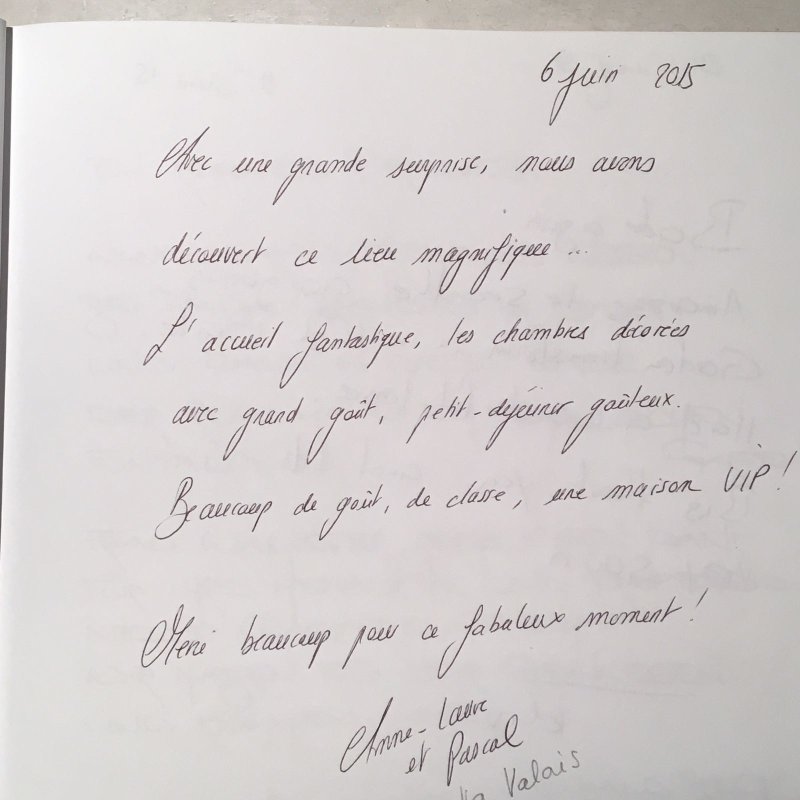 6 juin 2015
Avec une grande surprise, nous avons
découvert ce lieu magnifique ...
L'accueil fantastique, les chambres décorées
avec grand goût, petit-déjeuner goûteux.
Beaucoup de goût, de classe, une maison VIP !
Merci beaucoup pour ce fabuleux moment !
Anne-Laure
et Pascal
Valais